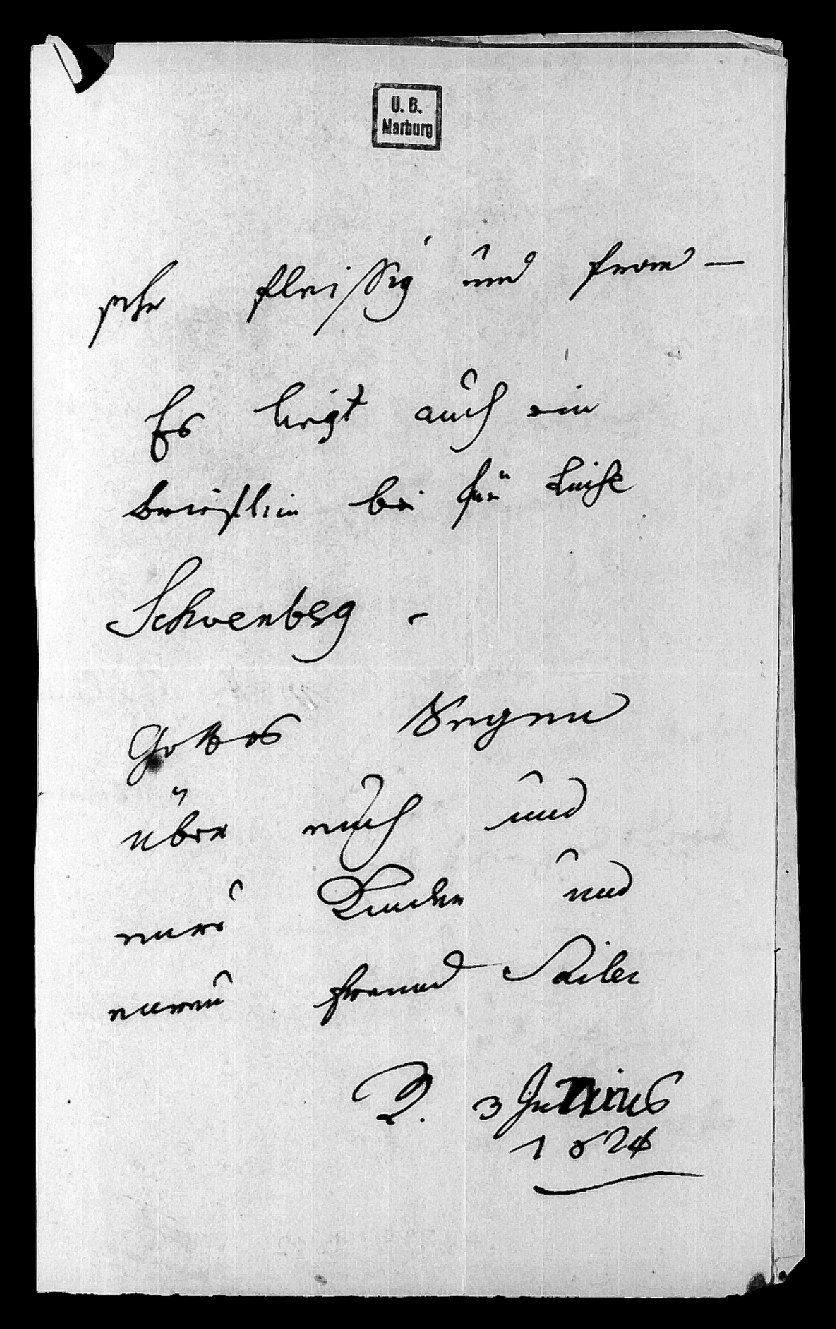 U. B.
Marburg
sehr fleissig und from —
Es liegt auch ein
brieflein bei für Luise
Schwenberg -
Gottes Segen
über euch und
eure Kinder und
euren freund Sailer
R. 3 Junius
1824